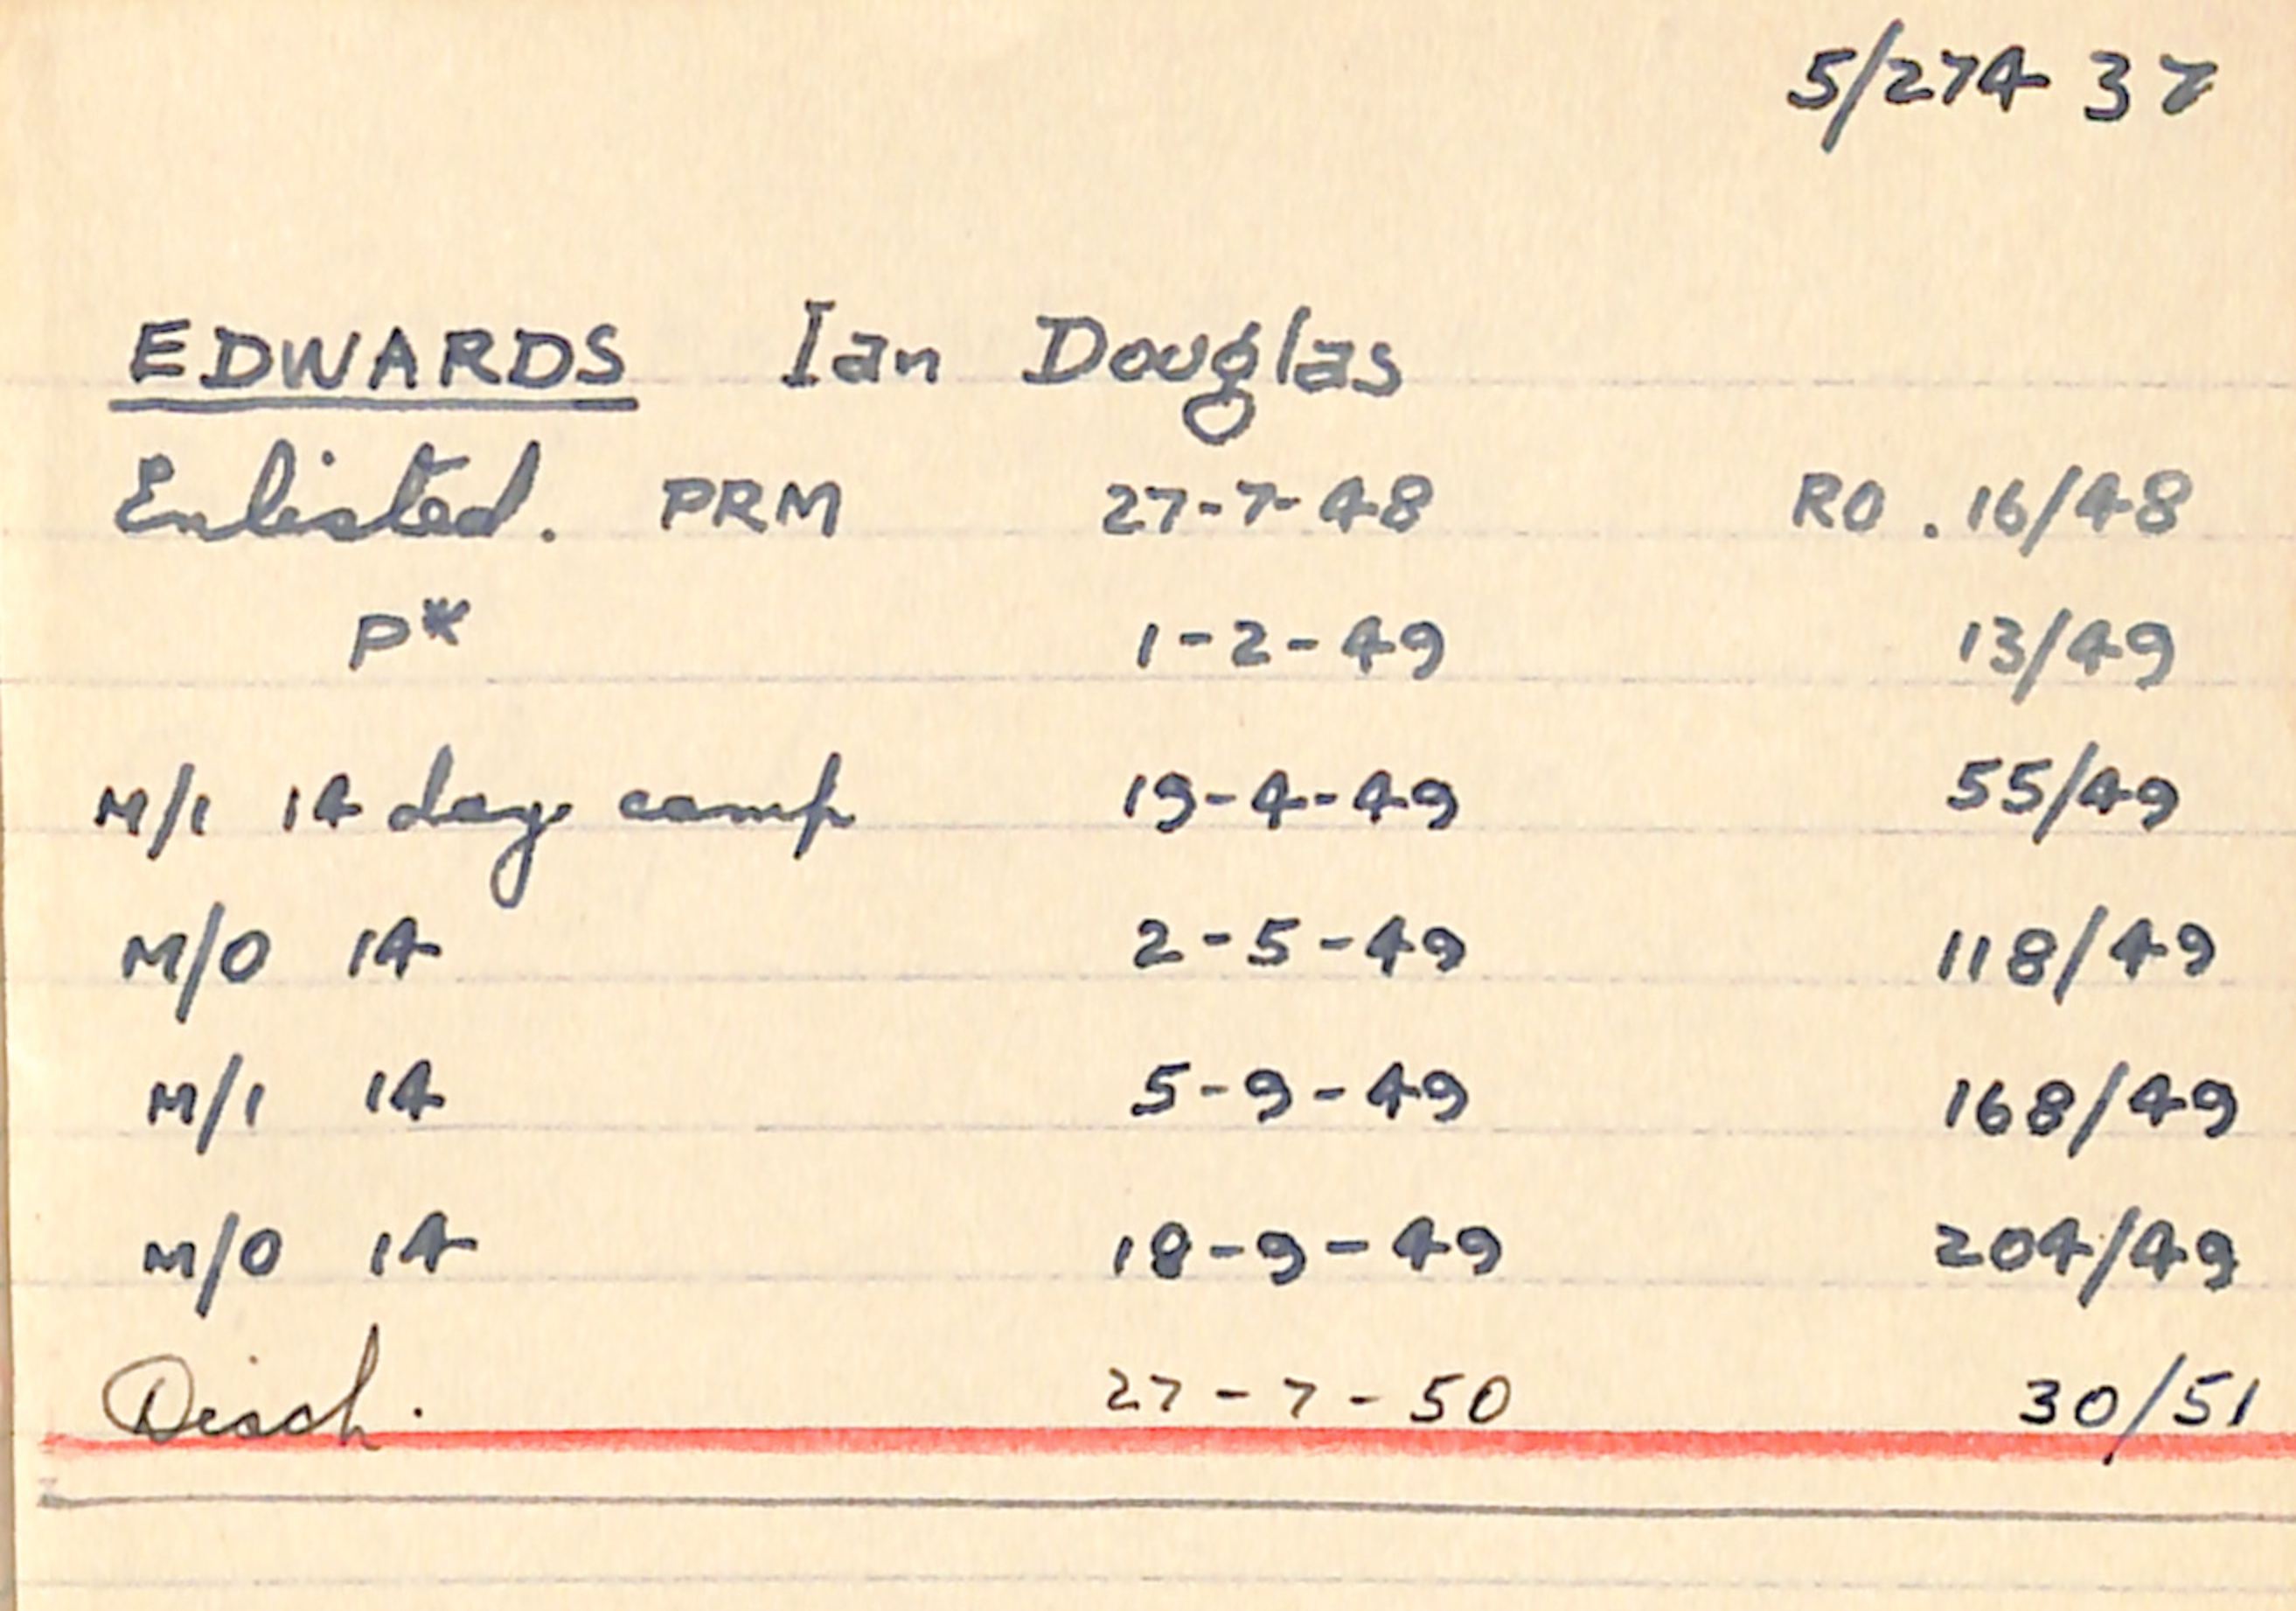 5/274 37
EDWARDS Ian Douglas
Enlisted. PRM 27-7-48 RO. 16/48
P* 1-2-49 13/49
M/1 14 day camp 19-4-49 55/49
M/O 14 2-5-49 118/49
M/1 14 5-9-49 168/49
M/O 14 18-9-49 204/49
Disch. 27-7-50 30/51